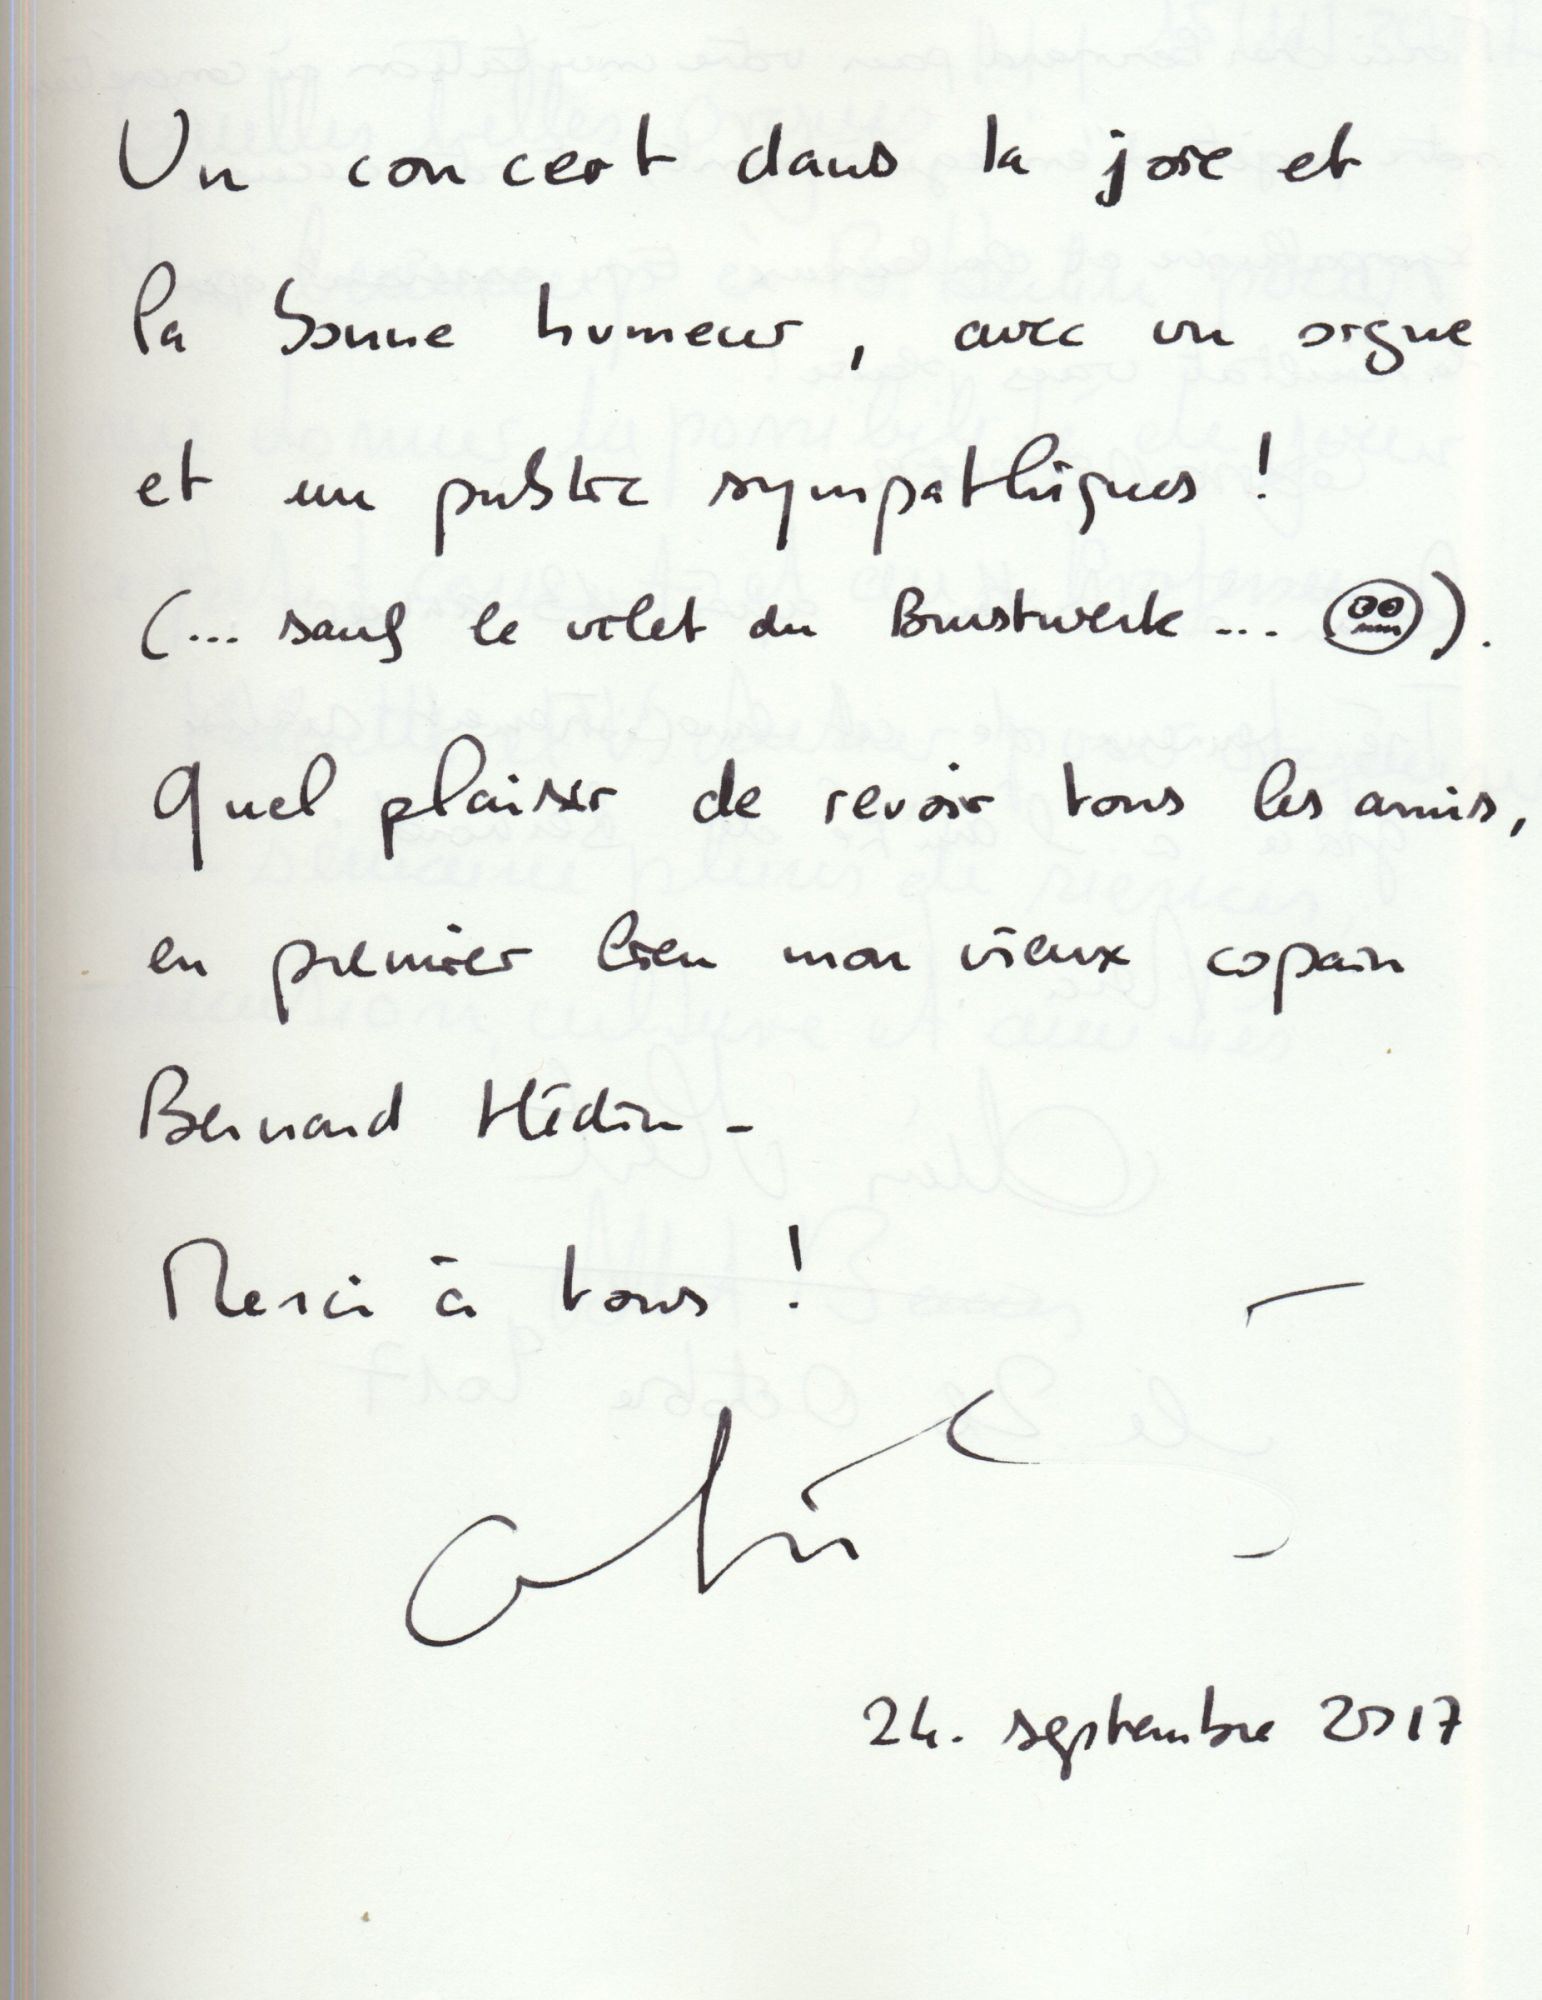 Un concert dans la joie et
la bonne humeur, avec un orgue
et un public sympathiques !
(... sauf le volet du Brustwerk ... ).
Quel plaisir de revoir tous les amis,
en premier lieu mon vieux copain
Bernard Hédin -
Merci à tous !
24. septembre 2017